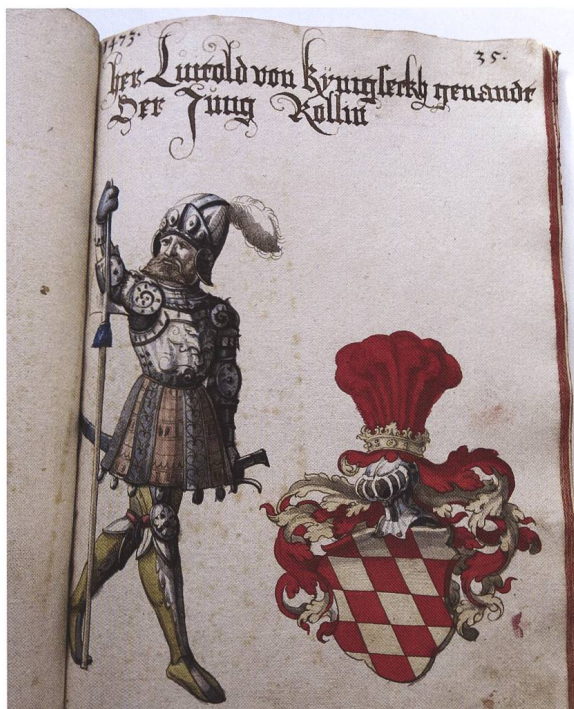 1473.
35.
her Lutold von Kynigseckh genandt
Der Jung Rollin